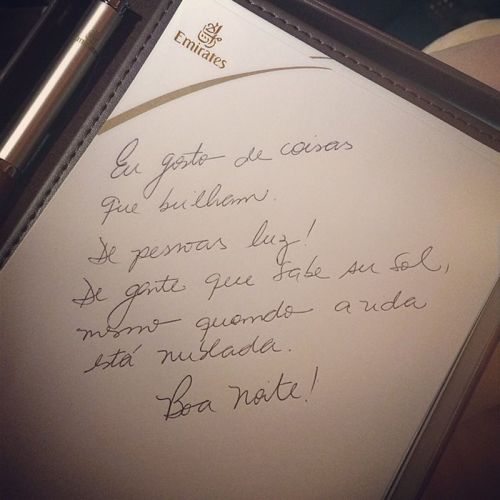 Emirates
Eu gosto de coisas
que brilham.
De pessoas luz!
De gente que sabe ser sol,
mesmo quando a vida
está nublada.
Boa noite!